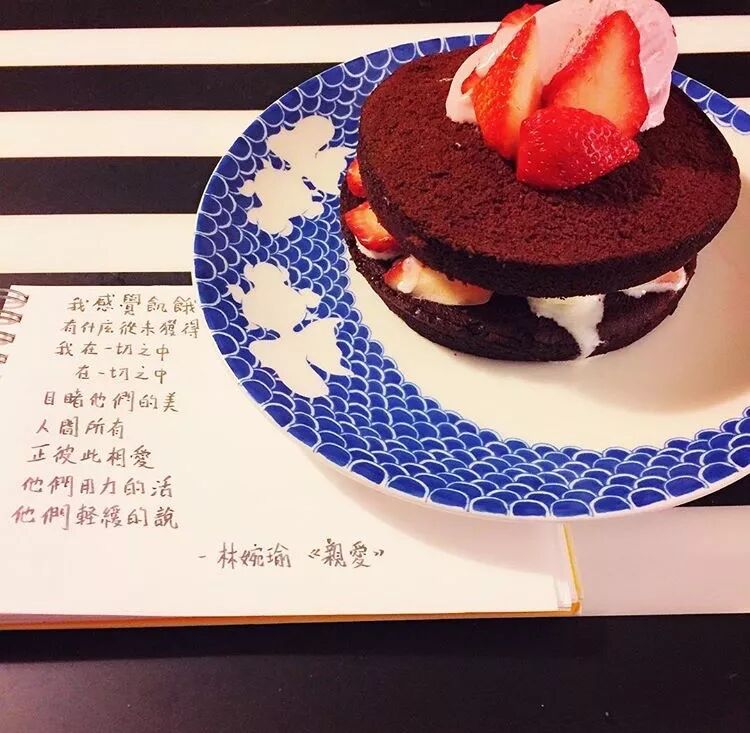 我感覺飢餓
有什麼從未獲得
我在一切之中
在一切之中
目睹他們的美
人間所有
正彼此相愛
他們用力的活
他們輕緩的說
- 林婉瑜《親愛》